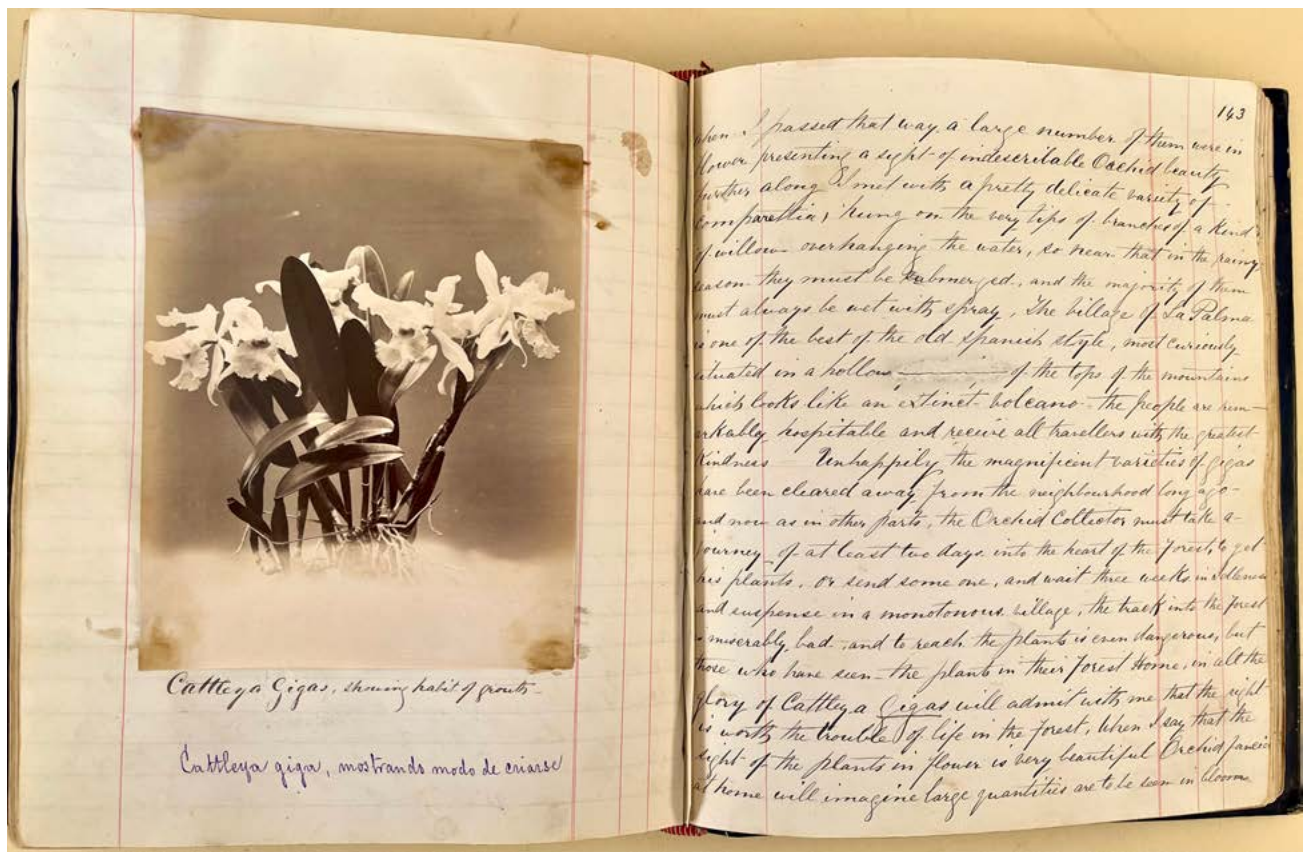 Cattleya Gigas, showing habit of growth
Cattleya giga, mostrando modo de criarse
143
when I passed that way a large number of them were in
flower presenting a sight of indescribable Orchid beauty
further along I met with a pretty delicate variety of
comparettia, hung on the very tips of branches of a kind
of willow overhanging the water, so near that in the rainy
season they must be submerged, and the majority of them
must always be wet with spray. The village of La Palma
is one of the best of the old Spanish style, most curiously
situated in a hollow of the tops of the mountains
which looks like an extinct volcano – the people are rem-
arkably hospitable and receive all travellers with the greatest
kindness Unhappily the magnificent varieties of gigas
have been cleared away from the neighbourhood long ago –
and now as in other parts, the Orchid Collector must take a
journey of at least two days into the heart of the forest, to get
his plants, or send some one, and wait three weeks in idleness
and suspense in a monotonous village, the track into the forest
is miserably bad, and to reach the plants is even dangerous, but
those who have seen the plants in their Forest Home, in all the
glory of Cattleya Gigas will admit with me that the sight
is worth the trouble of life in the forest, When I say that the
sight of the plants in flower is very beautiful Orchid
at home will imagine large quantities are to be seen in bloom